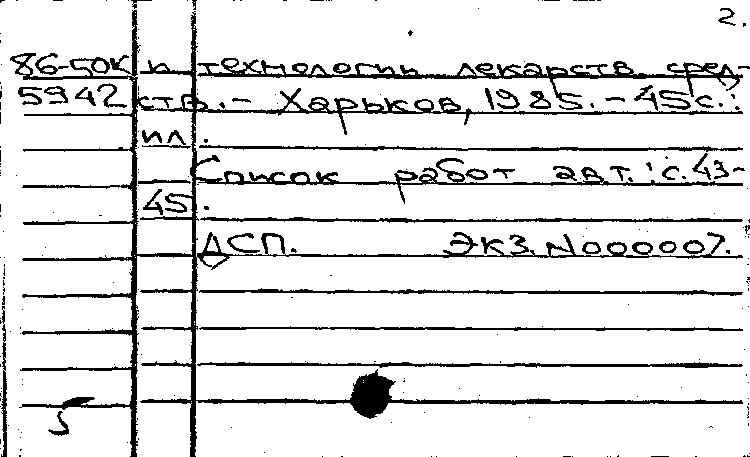 2.
86-50к и технологии лекарств. сред-
5942 ств. - Харьков, 1985. - 45с.:
ил.
Список работ авт.: с. 43-
45.
ДСП. Экз. N000007.
5